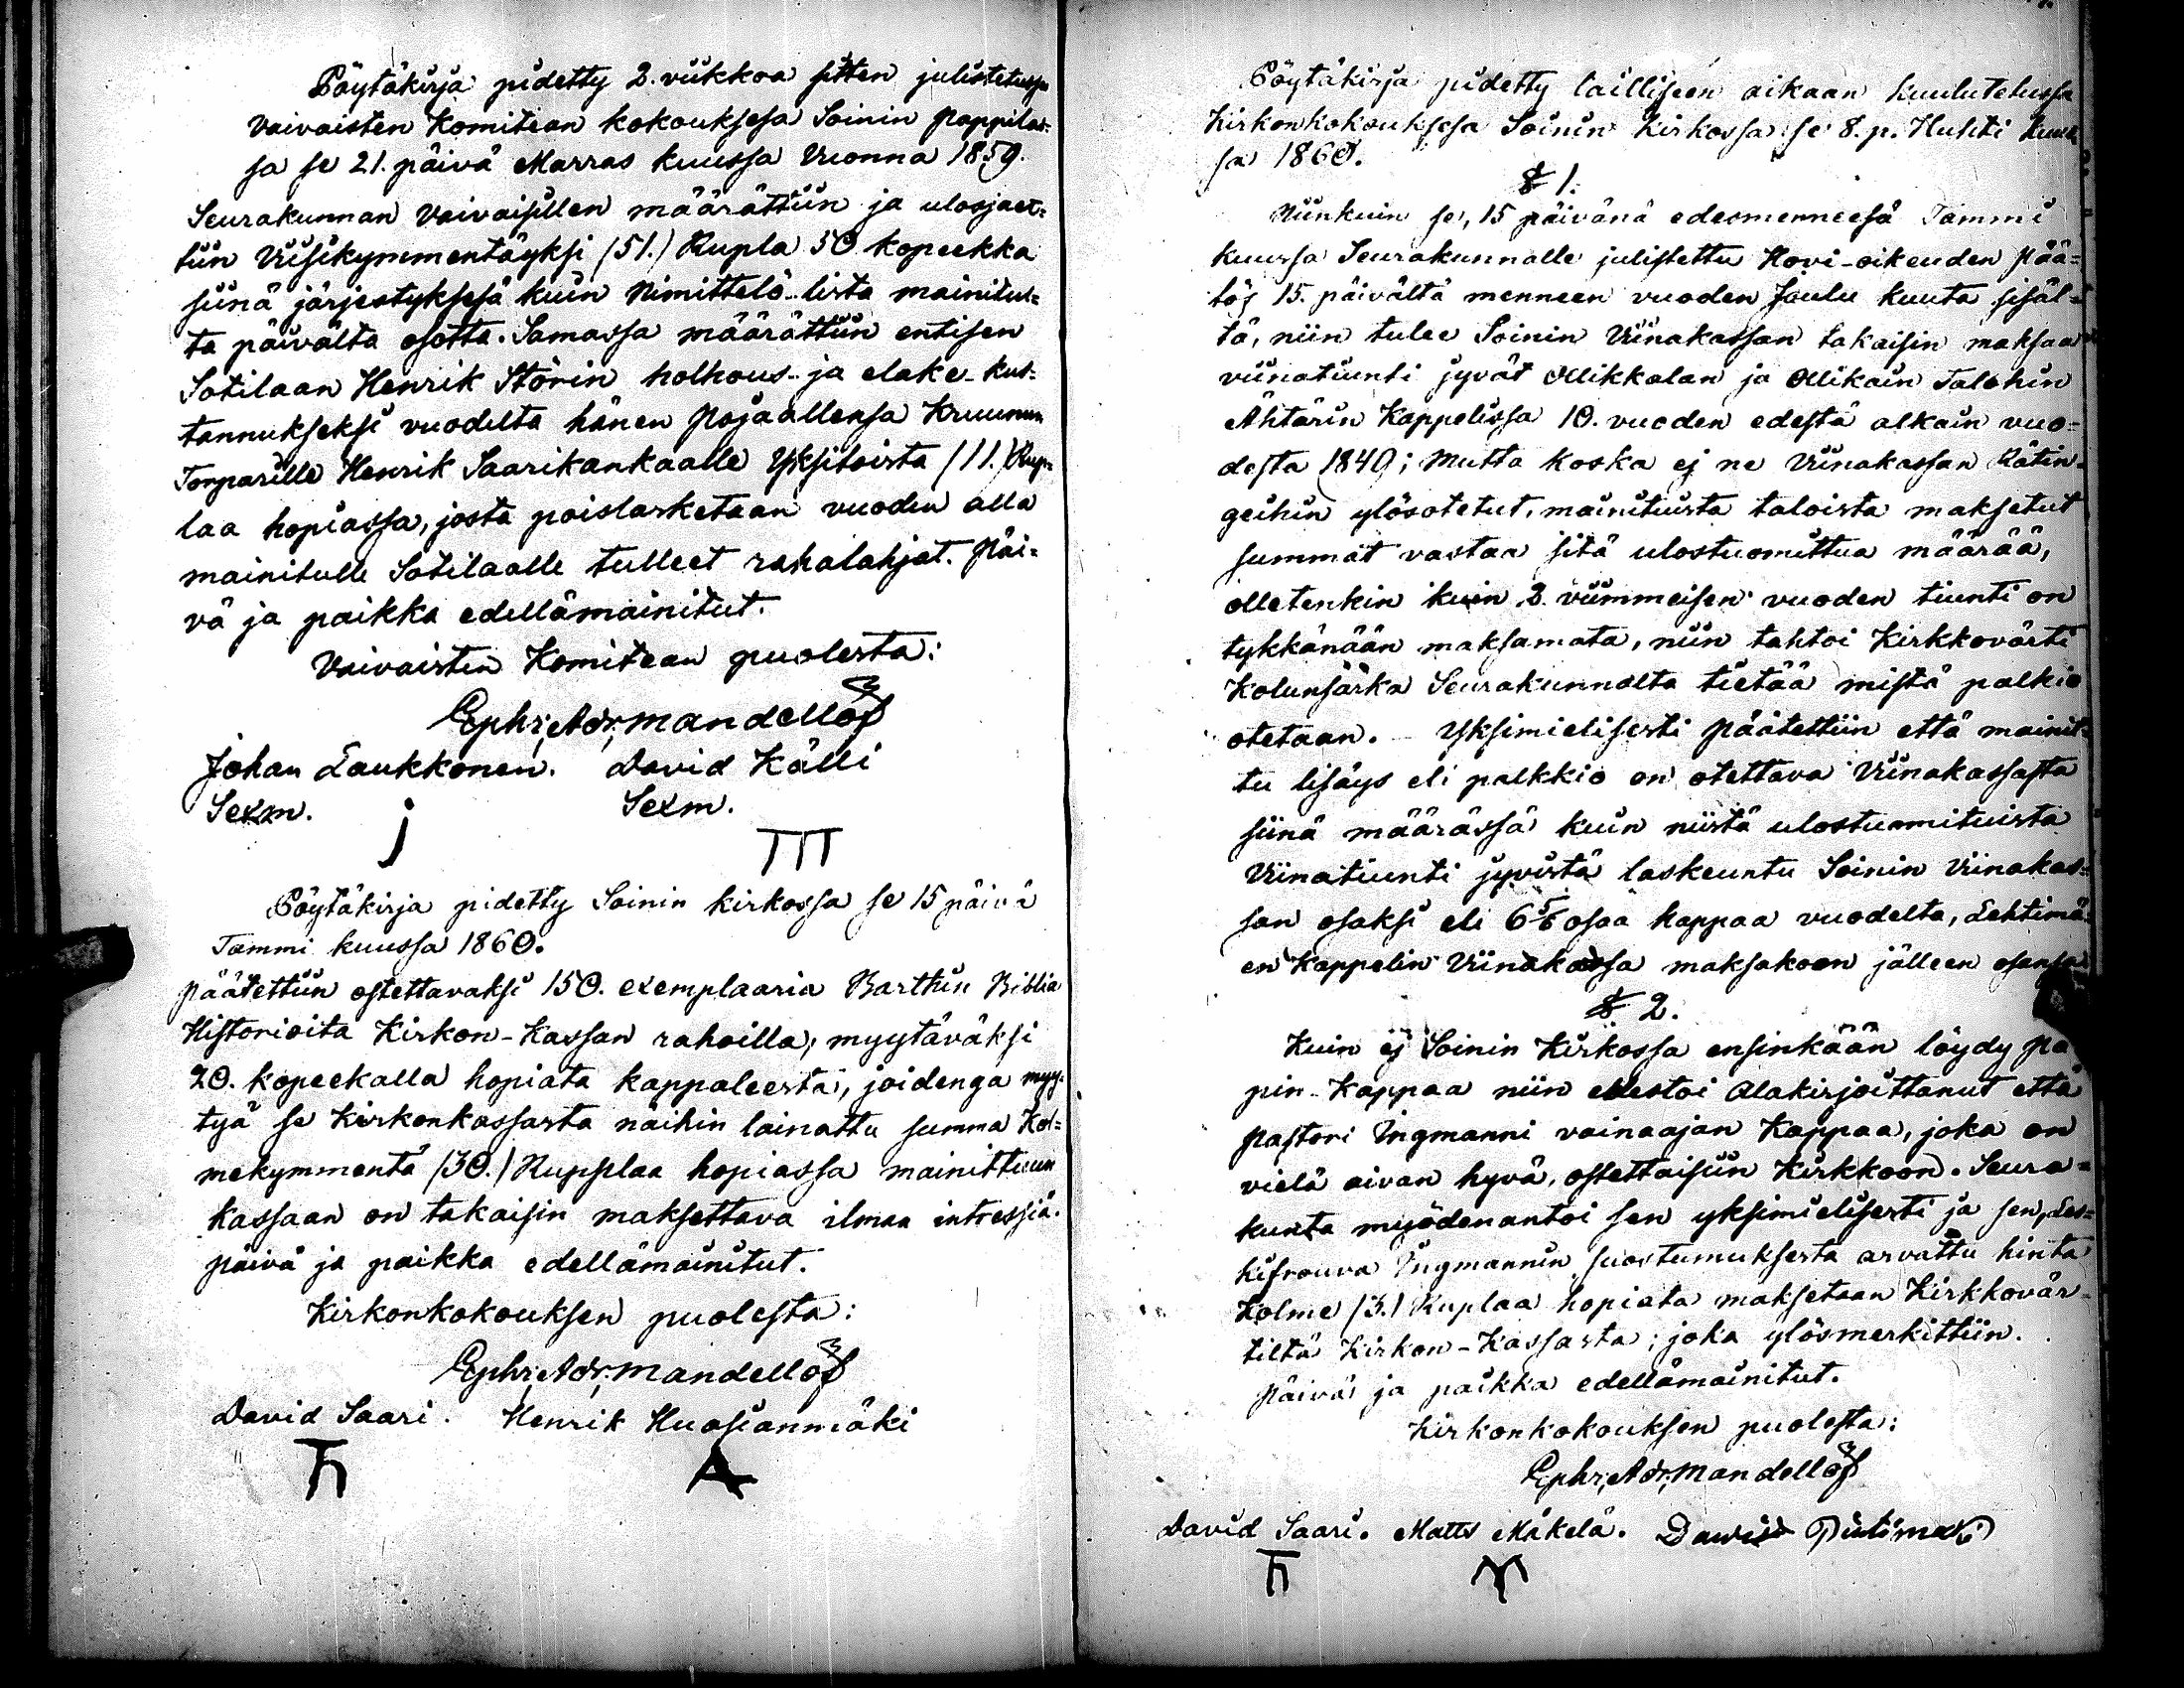 Pöytäkirja pidetty 2. viikkoa sitten julistetussa
Vaivaisten Komitean kokouksesa Soinin Pappilas=
sa se 21. päivä Marras kuussa Vuonna 1859.
Seurakunnan Vaivaisillen määrättiin ja uloojaet=
tiin Viisikymmentäyksi (51.) Rupla 50 kopeekka
siinä järjestyksesä kuin Nimittelö-lista mainitus=
ta päivältä osotta. Samassa määrättiin entisen
Sotilaan Henrik Störin holhous- ja elake-kus=
tannukseksi vuodelta hänen Pojaallensa Kruunun
Torparille Henrik Saarikankaalle Yksitoista (11.) Rup=
laa hopiassa, josta poislasketaan vuoden alla
mainitulle Sotilaalle tulleet rahalahjat. Päi=
vä ja paikka edellämainitut.
Vaivaisten Komitean puolesta:
Ephr. Adr. Mandellöf
Johan Laukkonen. David Källi
Sexm. Sexm.
Pöytäkirja pidetty Soinin kirkossa se 15 päivä
Tammi kuussa 1860.
Päätettiin ostettavaksi 150. exemplaaria Barthin Biblia
Historioita Kirkon-Kassan rahoilla, myytäväksi
20. kopeekalla hopiata kappaleesta, joidenga myy=
tyä se Kirkonkassasta näihin lainattu summa Kol=
mekymmentä (30.) Rupplaa hopiassa mainittuun
Kassaan on takaisin maksettava ilman intressiä.
Päivä ja paikka edellämainitut.
Kirkonkokouksen puolesta:
Ephr. Adr. Mandellöf
David Saari. Henrik Huosianmäki
Pöytäkirja pidetty lailliseen aikaan kuulutetussa
Kirkonkokouksesa Soinin Kirkossa se 8. p. Huhti kuus
sa 1860.
§ 1.
Niinkuin se, 15 päivänä edesmenneesä Tammi
kuussa Seurakunnalle julistettu Hovi-oikeuden Pää=
tös 15. päivältä menneen vuoden Joulu kuuta sisäl=
tä, niin tulee Soinin Viinakassan takaisin maksaa
viinatiunti jyvät Ollikkalan ja Ollikain Talohin
Ähtärin Kappelissa 10. vuoden edestä alkain vuo=
desta 1849; Mutta koska ej ne Viinakassan Rätin=
geihin ylösotetut, mainituista taloista maksetut
summat vastaa sitä ulostuomittua määrää,
olletenkin kuin 2. viimmeisen vuoden tiunti on
tykkänään maksamata, niin tahtoi Kirkkovärti
Kolunsarka Seurakunnalta tietää mistä palkio
otetaan. Yksimielisesti Päätettiin että mainit=
tu lisäys eli palkkio on otettava Viinakassasta
siinä määrässä kuin niistä ulostuomituista
Viinatiunti jyvistä laskeuntu Soinin Viinakas=
san osaksi eli 6 5/6 osaa kappaa vuodelta, Lehtimä=
en Kappelin Viinakassa maksakoon jälleen osansa
§ 2.
Kuin ej Soinin Kirkossa ensinkään löydy pa
pin-Kappaa niin edestoi Alakirjoittanut että
Pastori Ingmanni vainaajan Kappaa, joka on
vielä aivan hyvä, ostettaisiin Kirkkoon. Seura=
kunta myödenantoi sen yksimielisesti ja sen, Les=
kifrouva Ingmannin suostumuksesta arvattu hinta
Kolme (3.) Ruplaa hopiata maksetaan Kirkkovär=
tiltä Kirkon-Kassasta; joka ylösmerkittiin.
Päivä ja paikka edellämainitut.
Kirkonkokouksen puolesta:
Ephr. Adr. Mandellöf
David Saari. Matts Mäkelä. Dawid